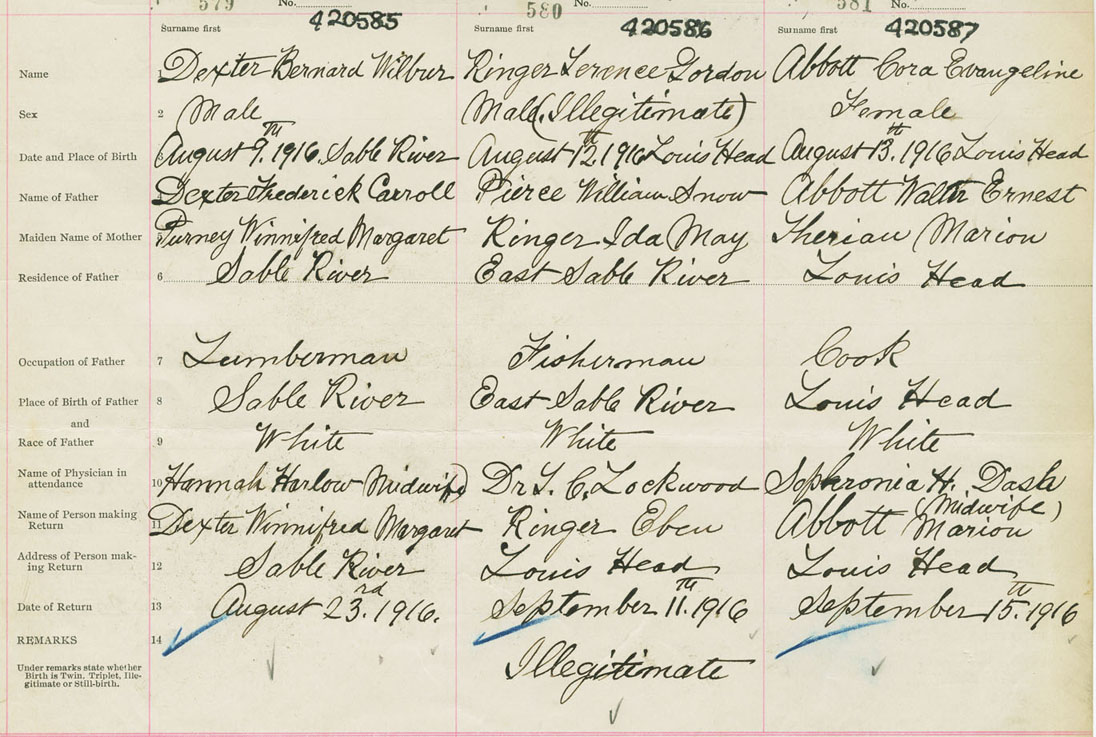 579 No. 580 No. 581 No.
420585 420586 420587
Surname first Surname first Surname first
Name 1 Dexter Bernard Wilbur Ringer Terence Gordon Abbott Cora Evangeline
Sex 2 Male Male (Illegitimate) Female
Date and Place of Birth 3 August 9.TH 1916. Sable River August 12th 1916 Louis Head August 13.th 1916 Louis Head
Name of Father Dexter Frederick Carroll Pierce William Snow Abbott Walter Ernest
Maiden Name of Mother 5 Purney Winnifred Margaret Ringer Ida May Theriau Marion
Residence of Father 6 Sable River East Sable River Louis Head
Occupation of Father 7 Lumberman Fisherman Cook
Place of Birth of Father 8 Sable River East Sable River Louis Head
and
Race of Father 9 White White White
Name of Physician in
attendance 10 Hannah Harlow Midwife) Dr. C. Lockwood Sophronia H. Dash
(Midwife)
Name of Person making
Return 11 Dexter Winnifred Margaret Ringer Eben Abbott Marion
Address of Person mak-
ing Return 12 Sable River Louis Head Louis Head
Date of Return 13 August 23.rd 1916. September 11.TH 1916 September 15.th 1916
REMARKS 14
Under remarks state whether
Birth is Twin. Triplet, Ille-
gitimate or Still-birth.
Illegitimate